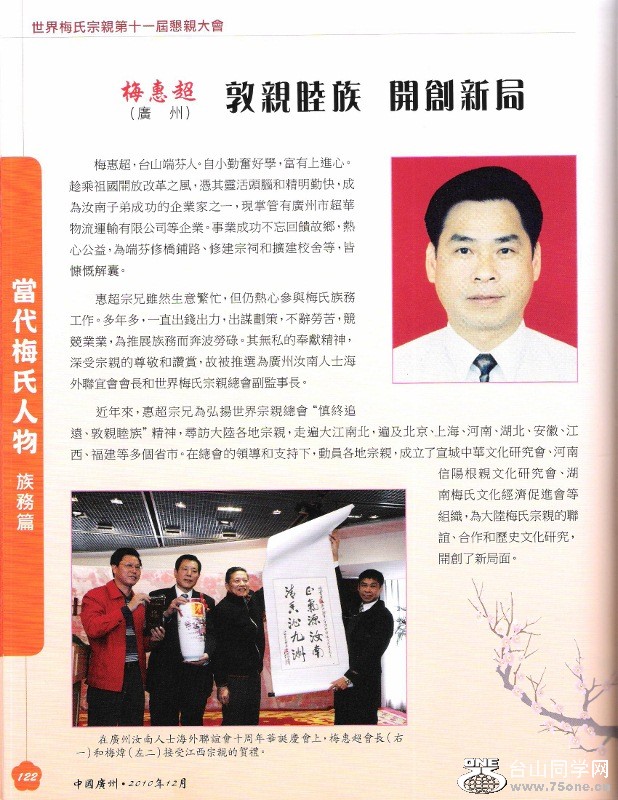 世界梅氏宗親第十一屆懇親大會
梅惠超
（廣 州）
敦親睦族 開創新局
梅惠超，台山端芬人。自小勤奮好學，富有上進心。
趁乘祖國開放改革之風，憑其靈活頭腦和精明勤快，成
為汝南子弟成功的企業家之一，現掌管有廣州市超華
物流運輸有限公司等企業。事業成功不忘回饋故鄉，熱
心公益，為端芬修橋鋪路、修建宗祠和擴建校舍等，皆
慷慨解囊。
惠超宗兄雖然生意繁忙，但仍熱心參與梅氏族務
工作。多年多，一直出錢出力，出謀劃策，不辭勞苦，競
競業業，為推展族務而奔波勞碌。其無私的奉獻精神，
深受宗親的尊敬和讚賞，故被推選為廣州汝南人士海
外聯宜會會長和世界梅氏宗親總會副監事長。
近年來，惠超宗兄為弘揚世界宗親總會“慎終追
遠、敦親睦族”精神，尋訪大陸各地宗親，走遍大江南北，遍及北京、上海、河南、湖北、安徽、江
西、福建等多個省市。在總會的領導和支持下，動員各地宗親，成立了宣城中華文化研究會、河南
信陽根親文化研究會、湖
南梅氏文化經濟促進會等
組織，為大陸梅氏宗親的聯
誼、合作和歷史文化研究，
開創了新局面。
當代梅氏人物 族務篇
正氣源汝南
清香沁九洲
在廣州汝南人士海外聯誼會十周年華誕慶會上，梅惠超會長（右
一）和梅煒（左二）接受江西宗親的賀禮。
122
中國廣州・2010年12月
ONE
75
台山同学网
www.75one.cn